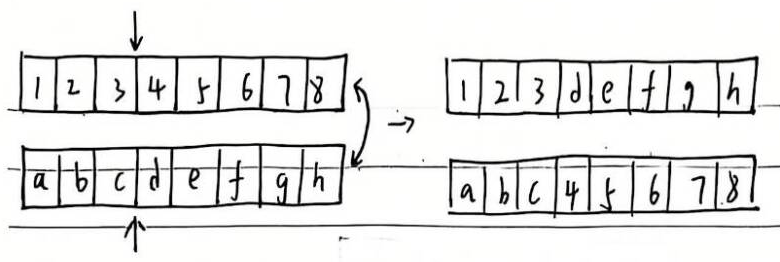 1 2 3 4 5 6 7 8 → 1 2 3 d e f g h
a b c d e f g h a b c 4 5 6 7 8